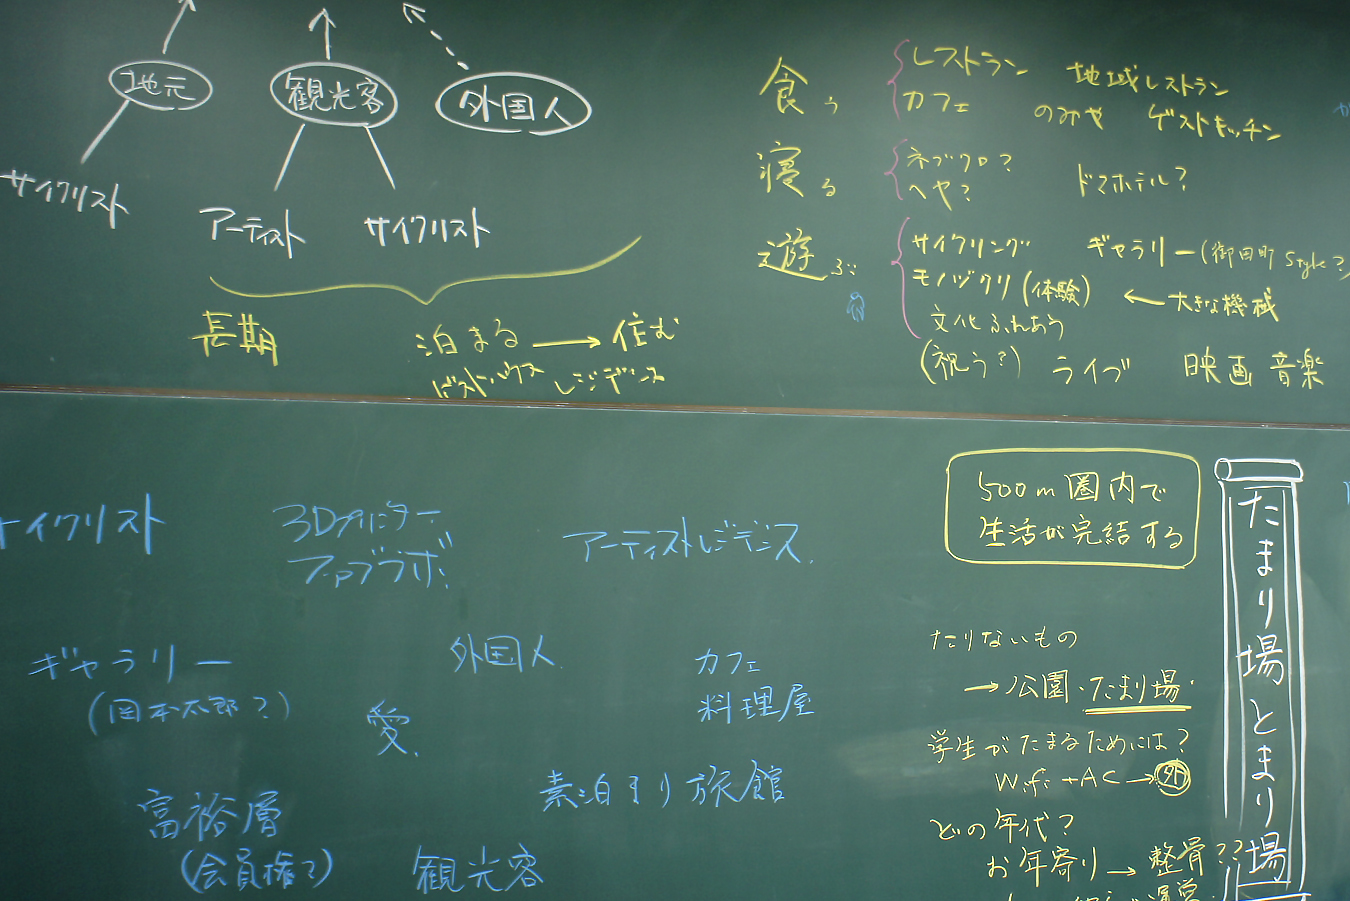 地元
観光客
外国人
サイクリスト
アーティスト
サイクリスト
長期
泊まる → 住む
ゲストハウス レジデンス
食う
レストラン 地域レストラン
カフェ のみや ゲストキッチン
寝る
ネブクロ? ドマホテル?
ヘヤ?
遊ぶ
サイクリング ギャラリー(御田町 Style?)
モノヅクリ(体験) ← 大きな機械
文化ふれあう
(祝う?) ライブ 映画 音楽
サイクリスト
3Dプリンター
ファブラボ
アーティストレジデンス.
ギャラリー
(岡本太郎?)
外国人
愛.
カフェ
料理屋
素泊まり旅館
富裕層
(会員権?)
観光客
500m圏内で
生活が完結する
たりないもの
→公園・たまり場・
学生がたまるためには?
Wifi+AC→外
どの年代?
お年寄り→整骨??
たまり場とまり場